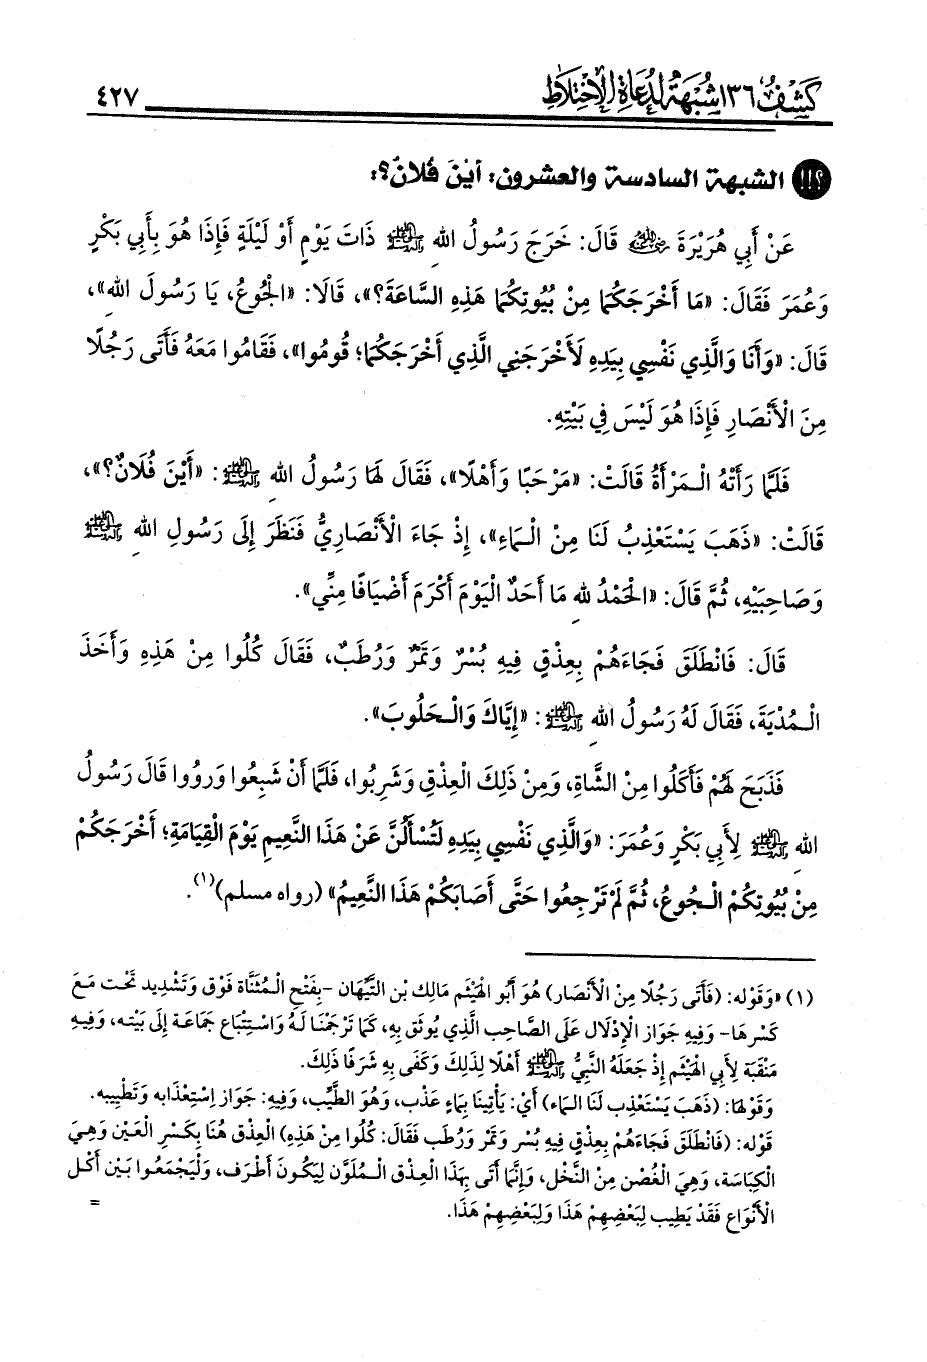 كشف ١٣٦ شبهة لدعاة الاختلاط
٤٢٧
الشبهة السادسة والعشرون: أَيْنَ فُلَانٌ؟:
عَنْ أَبِي هُرَيْرَةَ رضي الله عنه قَالَ: خَرَجَ رَسُولُ اللهِ ﷺ ذَاتَ يَوْمٍ أَوْ لَيْلَةٍ فَإِذَا هُوَ بِأَبِي بَكْرٍ
وَعُمَرَ فَقَالَ: «مَا أَخْرَجَكُمَا مِنْ بُيُوتِكُمَا هَذِهِ السَّاعَةَ؟»، قَالَا: «الْجُوعُ، يَا رَسُولَ اللهِ»،
قَالَ: «وَأَنَا وَالَّذِي نَفْسِي بِيَدِهِ لَأَخْرَجَنِي الَّذِي أَخْرَجَكُمَا؛ قُومُوا»، فَقَامُوا مَعَهُ فَأَتَى رَجُلًا
مِنَ الْأَنْصَارِ فَإِذَا هُوَ لَيْسَ فِي بَيْتِهِ.
فَلَمَّا رَأَتْهُ الْمَرْأَةُ قَالَتْ: «مَرْحَبًا وَأَهْلًا»، فَقَالَ لَهَا رَسُولُ اللهِ ﷺ: «أَيْنَ فُلَانٌ؟»،
قَالَتْ: «ذَهَبَ يَسْتَعْذِبُ لَنَا مِنْ الْمَاءِ»، إِذْ جَاءَ الْأَنْصَارِيُّ فَنَظَرَ إِلَى رَسُولِ اللهِ ﷺ
وَصَاحِبَيْهِ، ثُمَّ قَالَ: «الْحَمْدُ لِلهِ مَا أَحَدٌ الْيَوْمَ أَكْرَمَ أَضْيَافًا مِنِّي».
قَالَ: فَانْطَلَقَ فَجَاءَهُمْ بِعِذْقٍ فِيهِ بُسْرٌ وَتَمْرٌ وَرُطَبٌ، فَقَالَ كُلُوا مِنْ هَذِهِ وَأَخَذَ
الْمُدْيَةَ، فَقَالَ لَهُ رَسُولُ اللهِ ﷺ: «إِيَّاكَ وَالْحَلُوبَ».
فَذَبَحَ لَهُمْ فَأَكَلُوا مِنْ الشَّاةِ، وَمِنْ ذَلِكَ الْعِذْقِ وَشَرِبُوا، فَلَمَّا أَنْ شَبِعُوا وَرَوُوا قَالَ رَسُولُ
اللهِ ﷺ لِأَبِي بَكْرٍ وَعُمَرَ: «وَالَّذِي نَفْسِي بِيَدِهِ لَتُسْأَلُنَّ عَنْ هَذَا النَّعِيمِ يَوْمَ الْقِيَامَةِ؛ أَخْرَجَكُمْ
مِنْ بُيُوتِكُمْ الْجُوعُ، ثُمَّ لَمْ تَرْجِعُوا حَتَّى أَصَابَكُمْ هَذَا النَّعِيمُ» (رواه مسلم)(١).
(١) «وَقَوْله: (فَأَتَى رَجُلًا مِنْ الْأَنْصَار) هُوَ أَبُو الْهَيْثَم مَالِك بْن التَّيِّهَان -بِفَتْحِ الْمُثَنَّاة فَوْق وَتَشْدِيد تَحْت مَعَ
كَسْرهَا- وَفِيهِ جَوَاز الْإِدْلَال عَلَى الصَّاحِب الَّذِي يُوثَق بِهِ، كَمَا تَرْجَمْنَا لَهُ وَاسْتِتْبَاع جَمَاعَة إِلَى بَيْته، وَفِيهِ
مَنْقَبَة لِأَبِي الْهَيْثَم إِذْ جَعَلَهُ النَّبِيُّ ﷺ أَهْلًا لِذَلِكَ وَكَفَى بِهِ شَرَفًا ذَلِكَ.
وَقَوْلهَا: (ذَهَبَ يَسْتَعْذِب لَنَا الْمَاء) أَيْ: يَأْتِينَا بِمَاءٍ عَذْب، وَهُوَ الطَّيِّب، وَفِيهِ: جَوَاز اِسْتِعْذَابه وَتَطْيِيبه.
قَوْله: (فَانْطَلَقَ فَجَاءَهُمْ بِعِذْقٍ فِيهِ بُسْر وَتَمْر وَرُطَب فَقَالَ: كُلُوا مِنْ هَذِهِ) الْعِذْق هُنَا بِكَسْرِ الْعَيْن وَهِيَ
الْكِبَاسَة، وَهِيَ الْغُصْن مِنْ النَّخْل، وَإِنَّمَا أَتَى بِهَذَا الْعِذْق الْمُلَوَّن لِيَكُونَ أَطْرَف، وَلْيَجْمَعُوا بَيْن أَكْل
الْأَنْوَاع فَقَدْ يَطِيب لِبَعْضِهِمْ هَذَا وَلِبَعْضِهِمْ هَذَا.
=